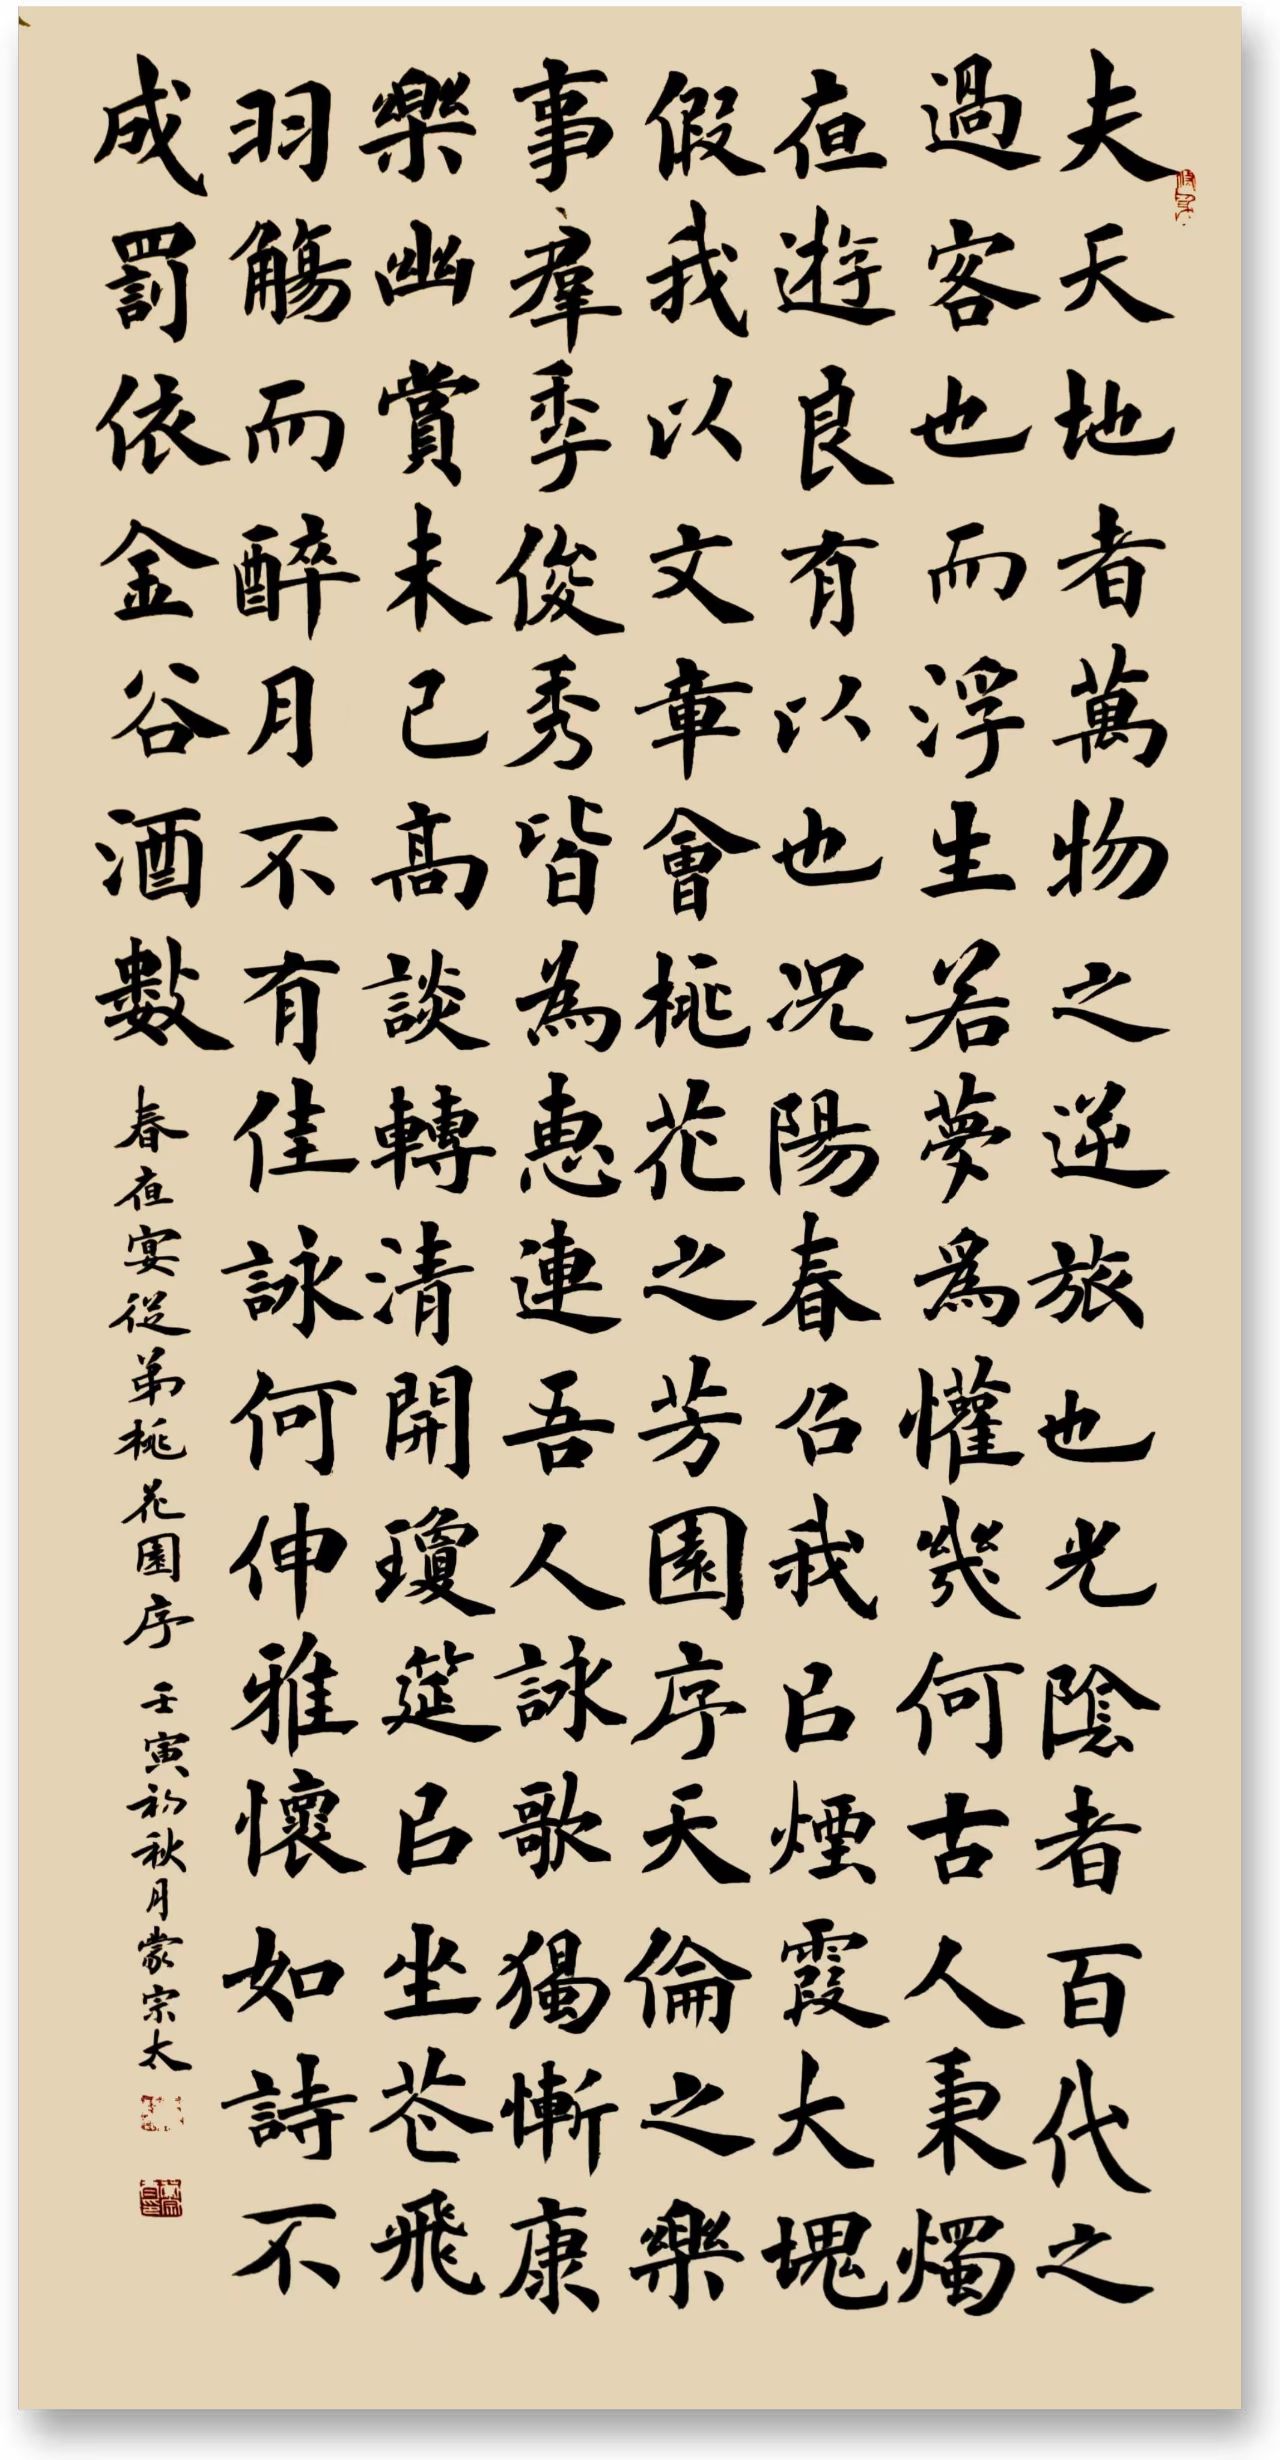 夫天地者萬物之逆旅也光陰者百代之
過客也而浮生若夢爲懽幾何古人秉燭
夜遊良有以也况陽春召我㠯煙霞大塊
假我以文章會桃花之芳園序天倫之樂
事羣季俊秀皆為惠連吾人詠歌獨慚康
樂幽賞未已高談轉清開瓊筵㠯坐花飛
羽觴而醉月不有佳詠何伸雅懷如詩不
成罰依金谷酒數 春夜宴從弟桃花園序 壬寅初秋月蒙宗太